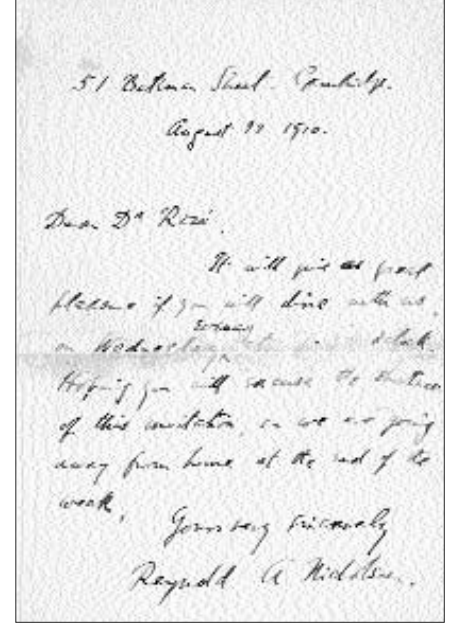 51 Bateman Street. Cambridge.
August 1910.
Dear Dr
It will give us great
pleasure if you will dine with us,
evening
on Wednesday
Hoping you will excuse the shortness
of this invitation, as we are going
away from home at the end of the
week,
Yours very sincerely
Reynold A Nicholson.